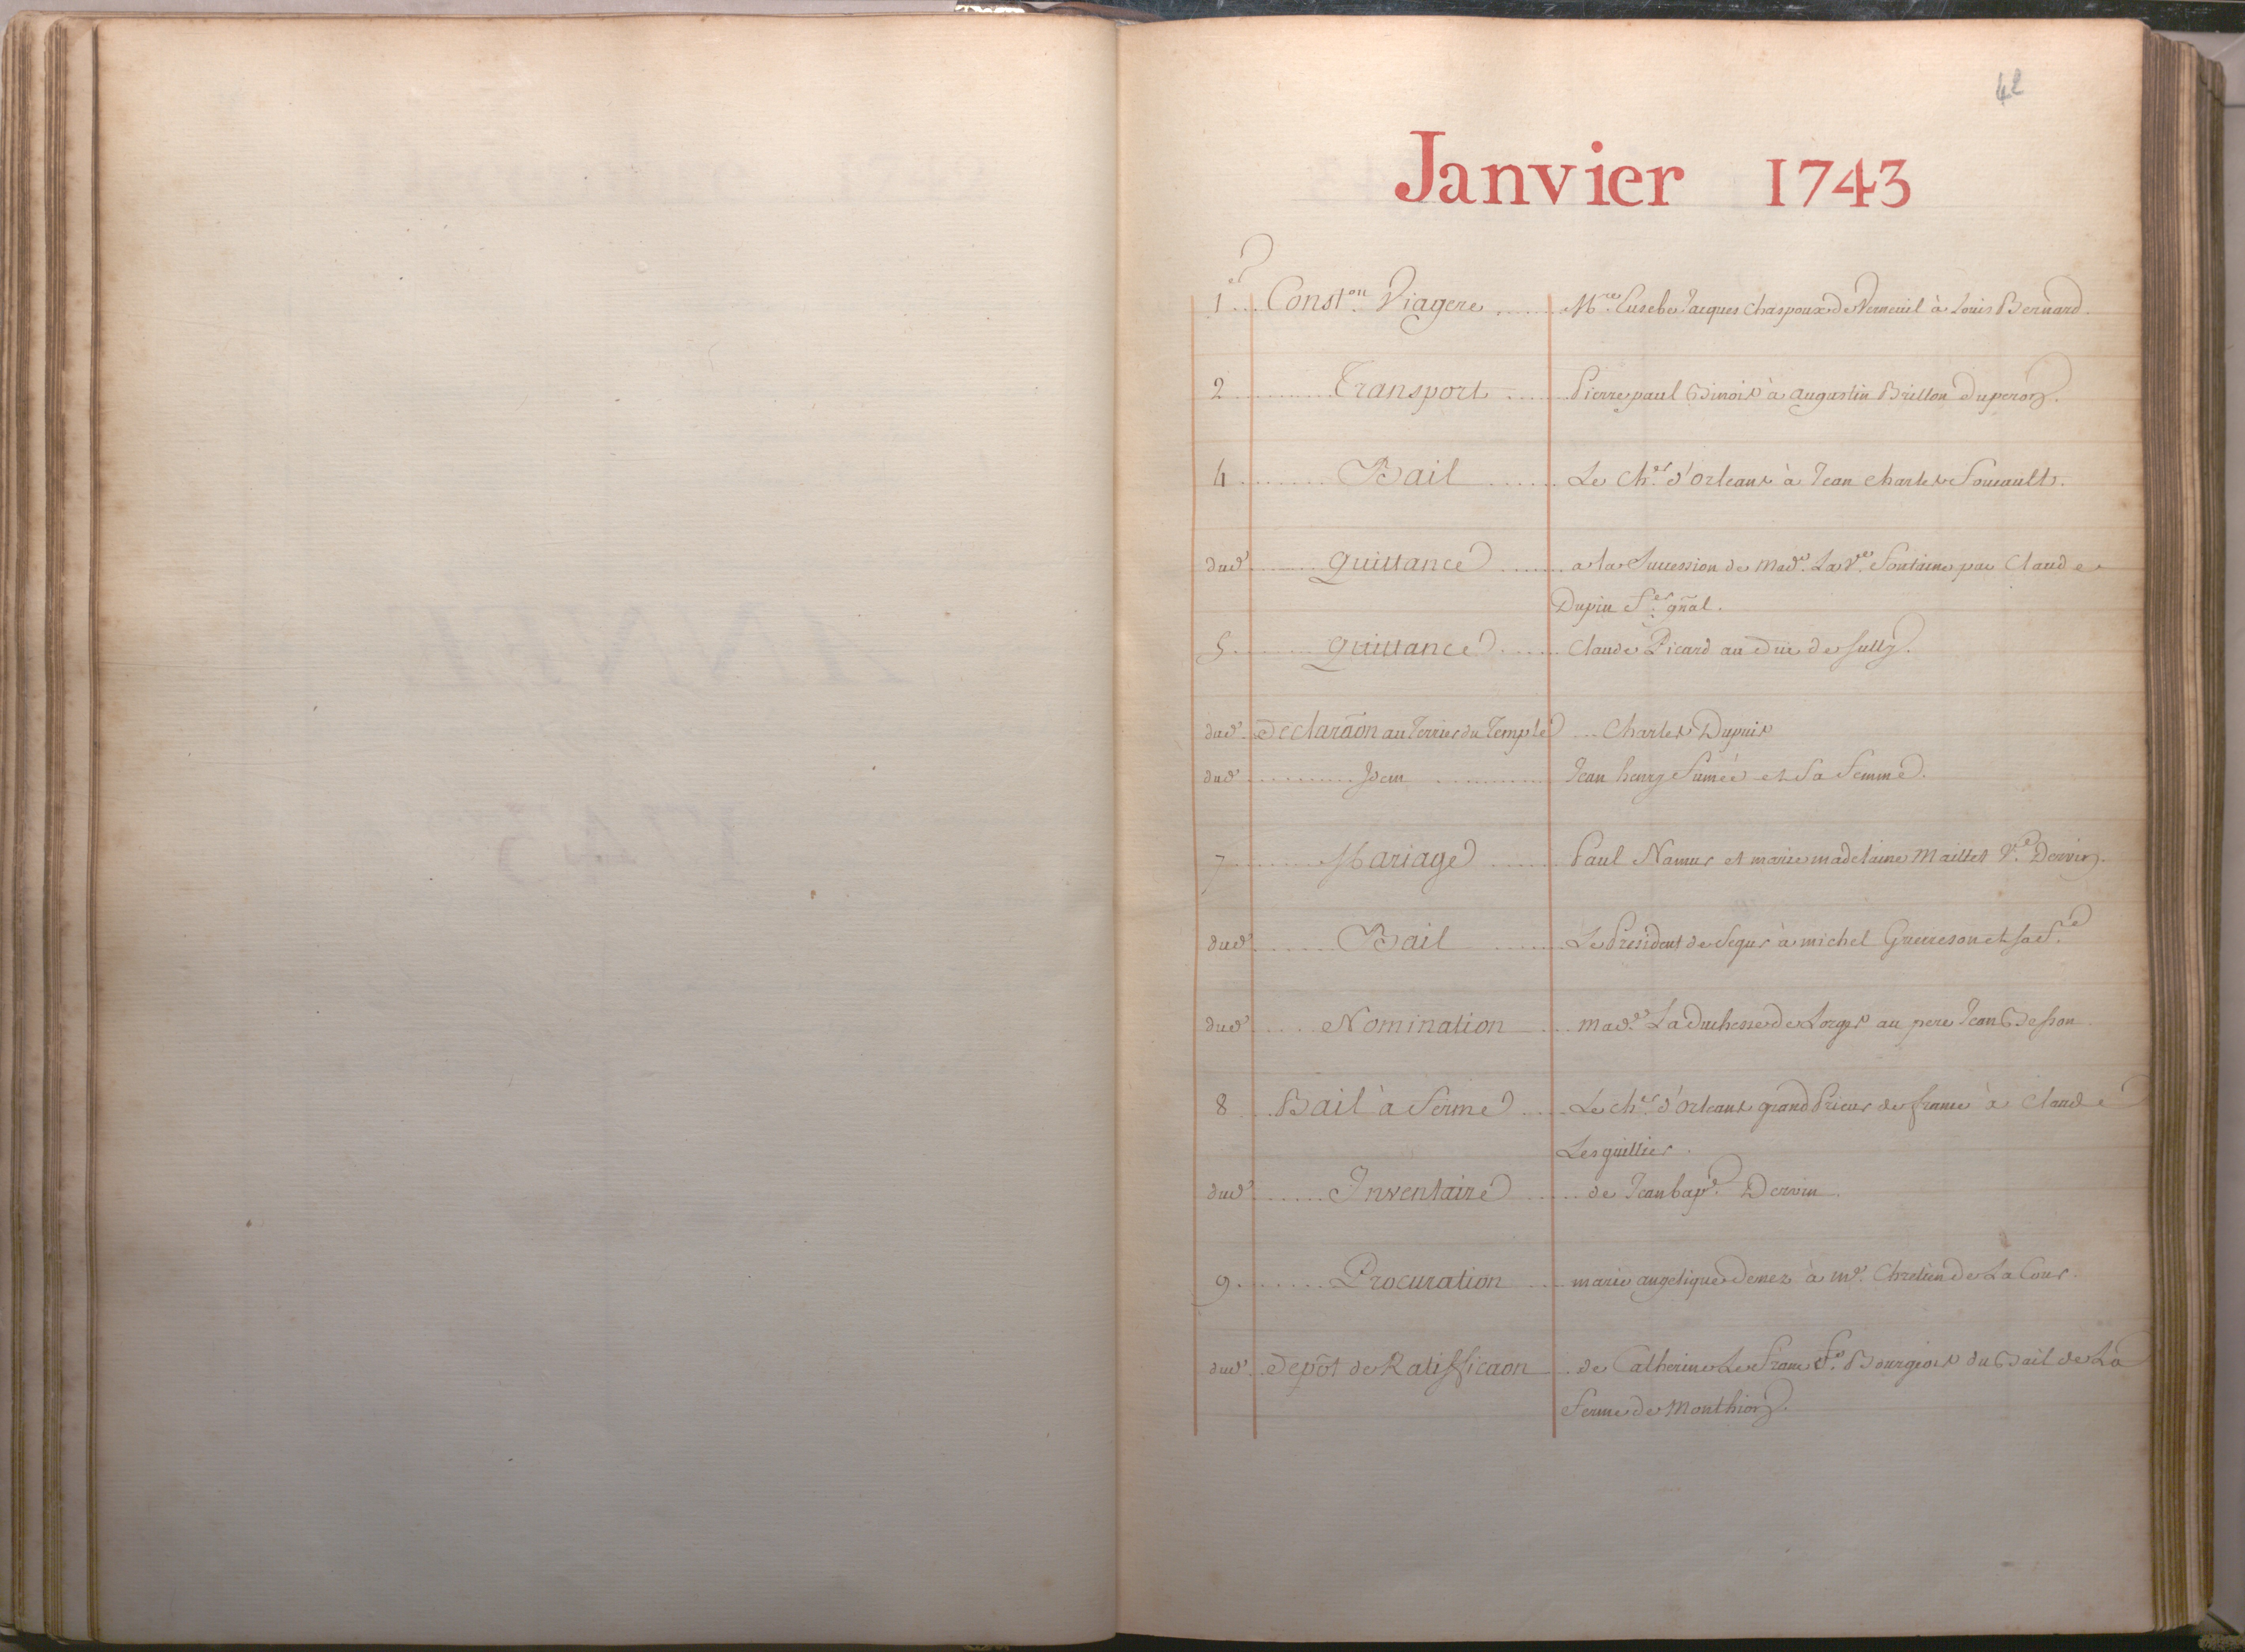 42
Janvier 1743
1er Const.on Viagere M.re Eusebe Jacques Chaspoux de Verneuil à Louis Bernard.
2 Transport Pierre paul Binois à augustin Brillon Duperon.
4 Bail Le Ch.er d'Orleans à Jean Charles Foucault.
dud. Quittance a la Succession de Mad.e La V.e Fontaine par Claude
Dupin f.er gñal.
5 Quittance Claude Picard au Duc de Sully.
dud. Declarãon au Terrier du Temple Charles Dupuis
dud. Idem Jean henry Fumée et Sa Femme.
7 Mariage Paul Namur et marie madelaine Maillet V.e Dervin.
dud. Bail Le President de Segur à michel et sa f.e
dud. Nomination Mad.e La Duchesse de Lorges au pere Jean Besson
8 Bail à Ferme Le ch.er d'Orleans grand Prieur de france à Claude
Lesguillier.
dud. Inventaire de Jean bap.e Dervin.
9 Procuration marie angelique Demez à M.e Chretien de La Cour.
dud. Depôt de Ratifficaon de Catherine Le Franc f.e Bourgeois du Bail de La
Ferme de Monthion.